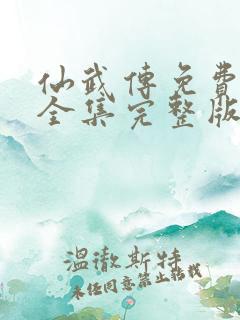 仙武傳免費
全集完整版
溫徹斯特
未经同意禁止转载